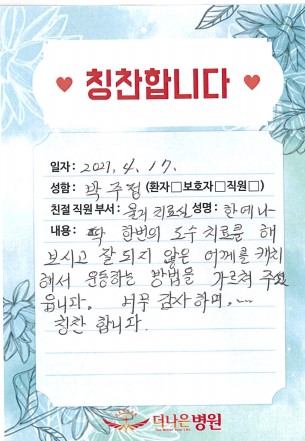 칭찬합니다
일자: 2021. 4. 17.
성함: 박주정 (환자□보호자□직원□)
친절 직원 부서: 물리치료실 성명: 한예나
내용: 딱 한번의 도수 치료를 해
보시고 잘 되지 않은 어깨를 캐치
해서 운동하는 방법을 가르쳐 주셨
읍니다. 너무 감사하며....
칭찬 합니다.
더나은병원